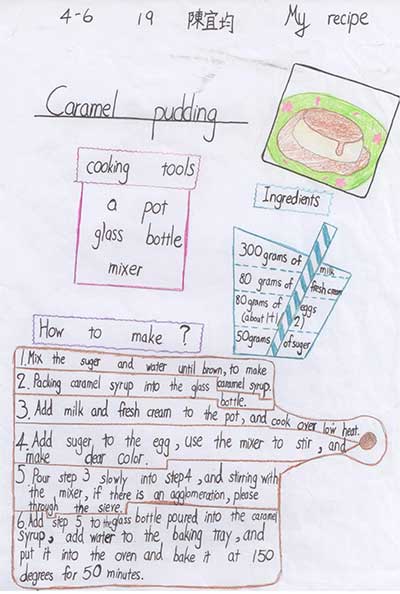 4-6 19 陳宜均 My recipe
Caramel pudding
cooking tools
a pot
glass bottle
mixer
Ingredients
300 grams of milk
80 grams of fresh cream
80 grams of eggs
(about 1+1/2)
50 grams of suger
How to make ?
1. Mix the suger and water until brown, to make
caramel syrup.
2. Packing caramel syrup into the glass
bottle.
3. Add milk and fresh cream to the pot, and cook over low heat.
4. Add suger to the egg, use the mixer to stir, and
make clear color.
5. Pour step 3 slowly into step4, and stirring with
the mixer, if there is an agglomeration, please
through the sieve.
6. Add step 5 to the glass bottle poured into the caramel
syrup, add water to the baking tray, and
put it into the oven and bake it at 150
degrees for 50 minutes.